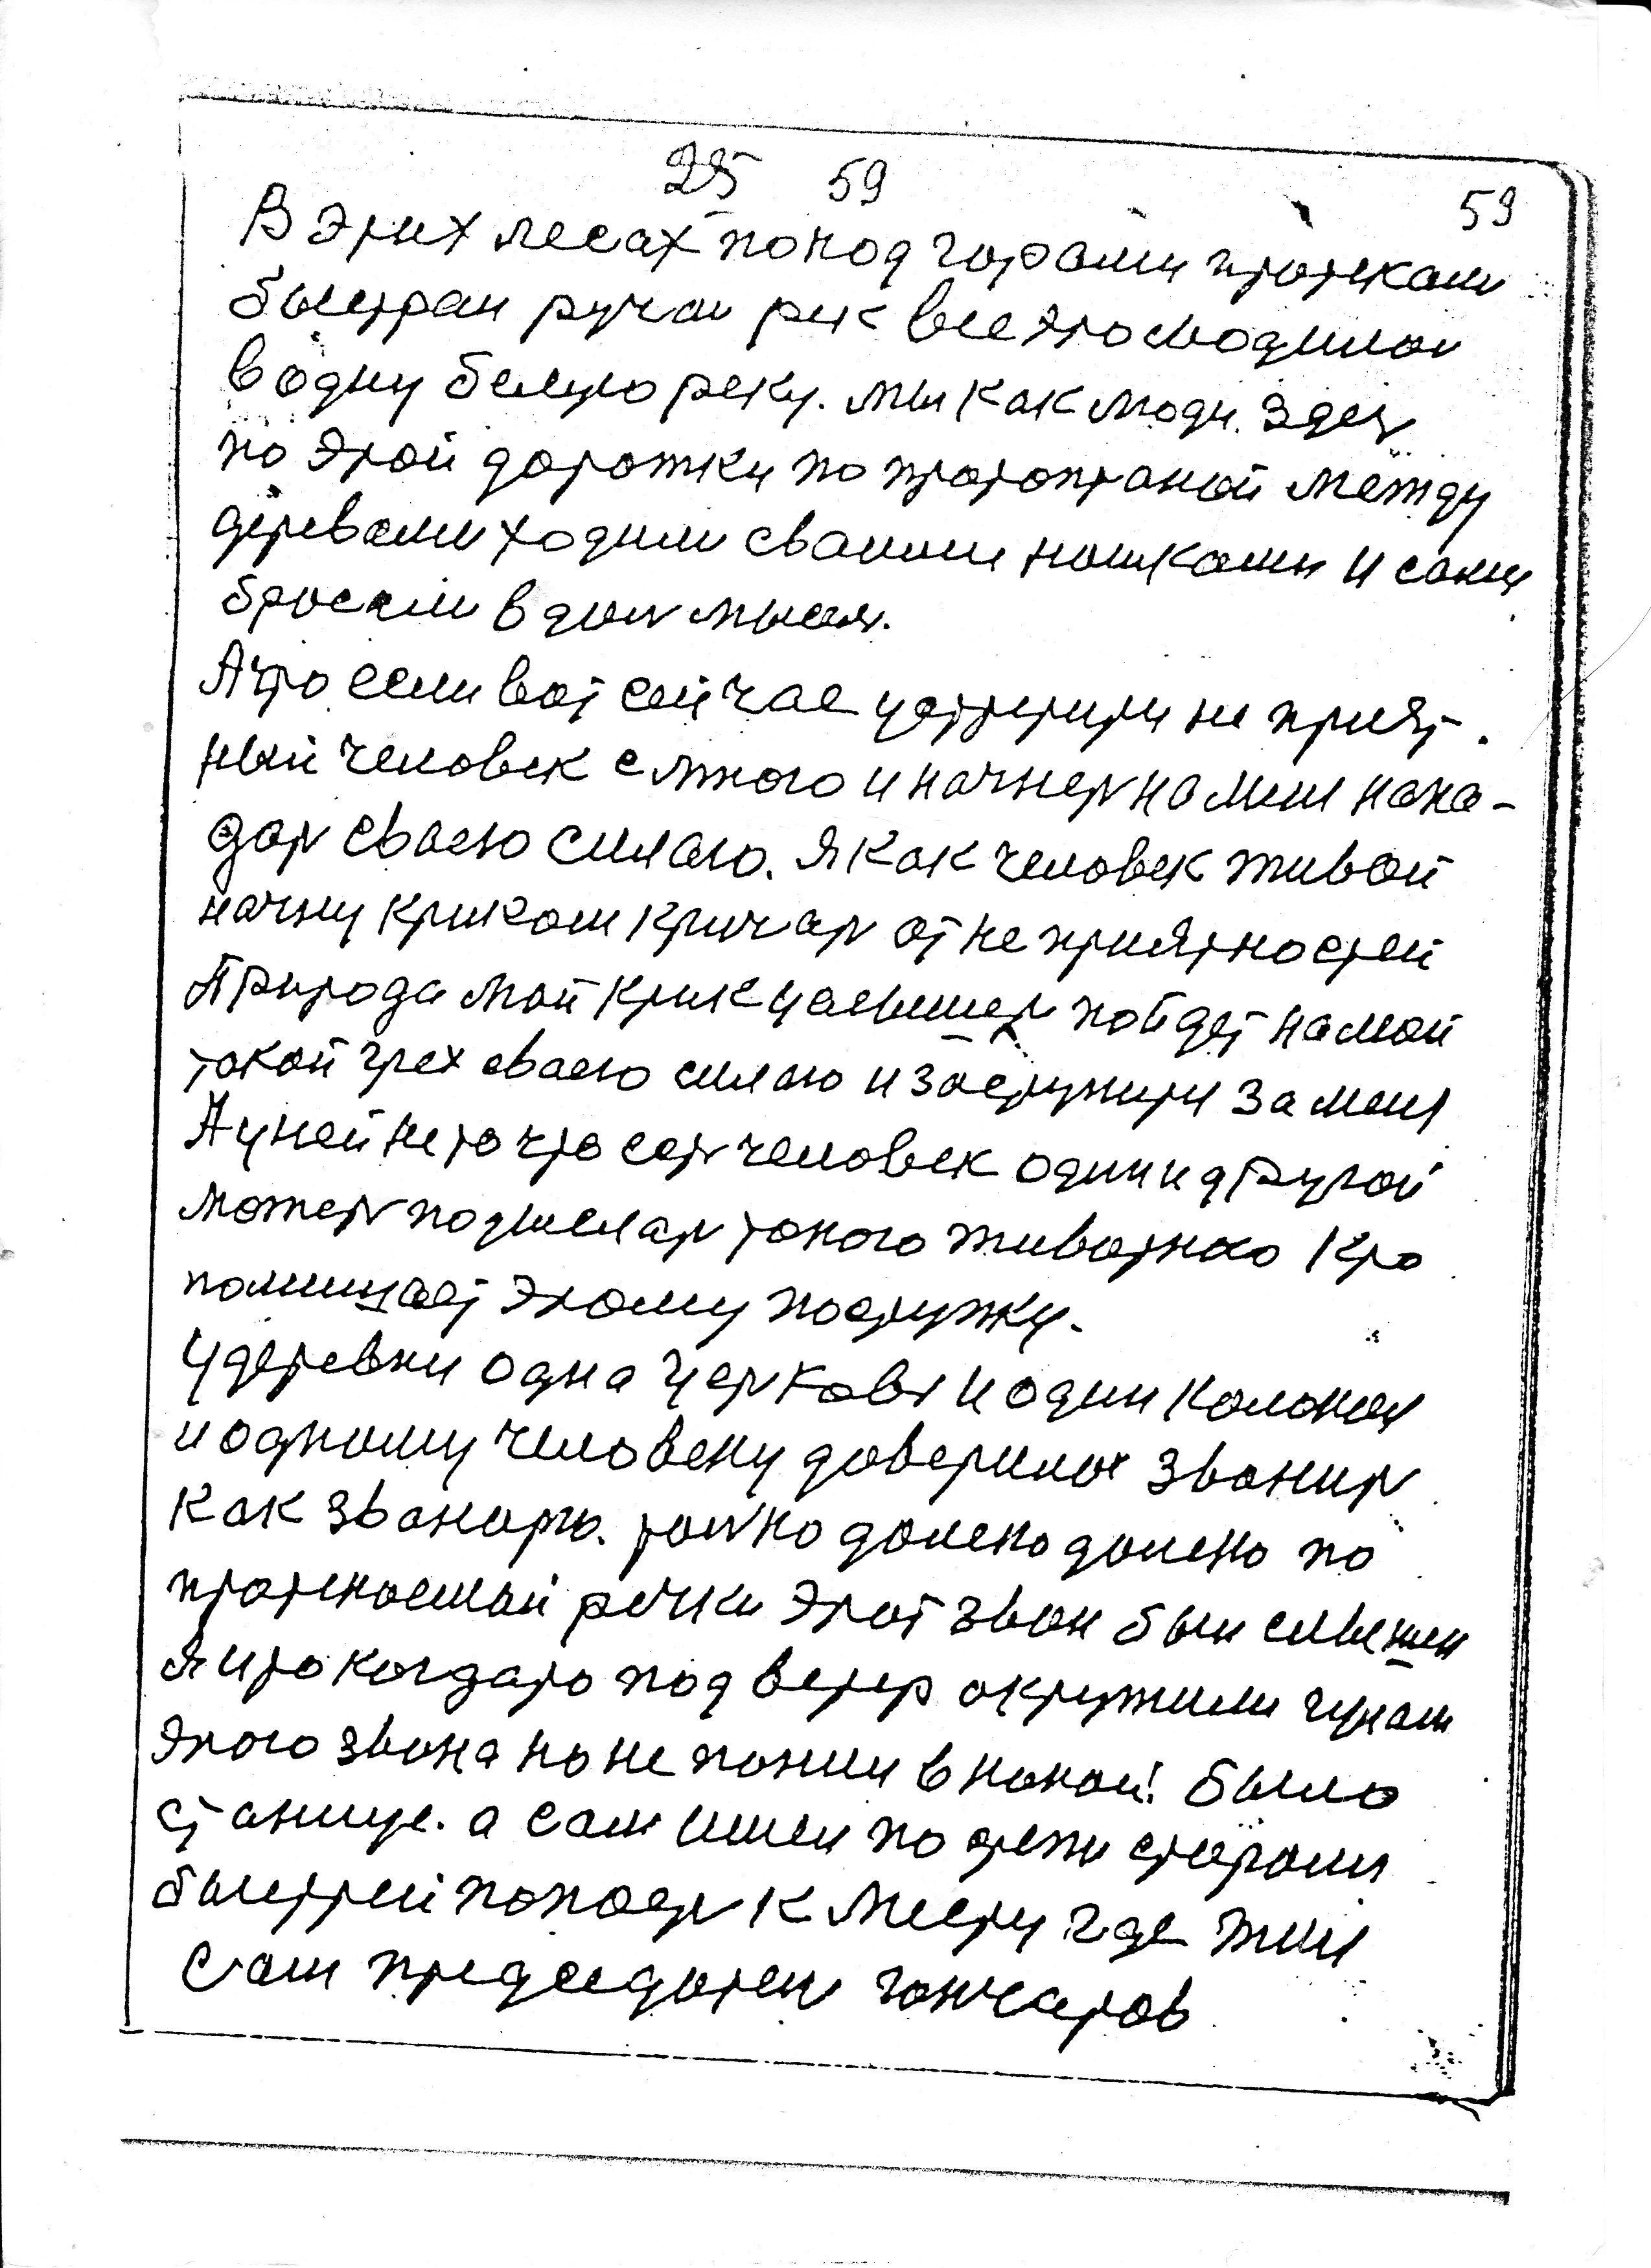 25 59 59
В этих лесах попод горами протекали
быстраи ручаи рек все это сводилос
в одну белую реку. мы как люди здес
по этой дорожки по протоптаной между
деревами ходили сваими ношками и сами
бросали в дол мысля.
А что если вот сейчас устретити не прият-
ный человек с много и начнет на мени напа-
дат сваею силаю. Я как человек живой
начну криком кричат от не приятностей
Природа мой крик услышет пойдет на мой
такой грех сваею силаю и заступити за меня
А у ней не то что сет человек один и другой
может подъислат такого животнаго кто
помишает этому поступку.
У деревни одна церковь и один колокол
и одному человеку доверилос званит
как званарю. толко далеко далеко по
протекаемай речки этот звон был слышен
Я что когдато под ветер окружили гулам
этого звона но не помни в какой было
станице. а сам шел по этеж старони
быстрей попаст к месту где жил
сам председател гончаров